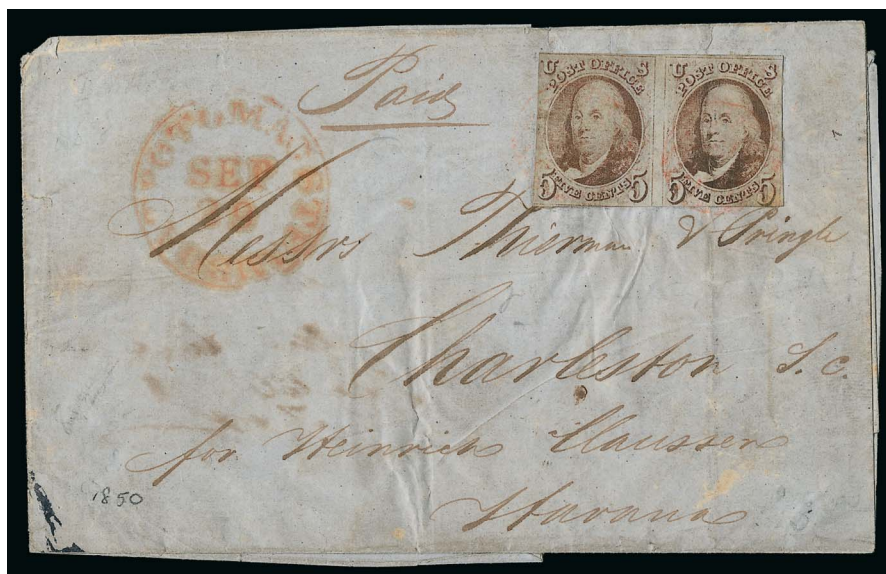 Paid
U S
POST OFFICE
5 FIVE CENTS 5
U S
POST OFFICE
5 FIVE CENTS 5
POTOMAC STEAMBOAT
SEP
Messrs Thierman & Pringle
Charleston S. C.
for Heinrich Claussen
Havana
1850